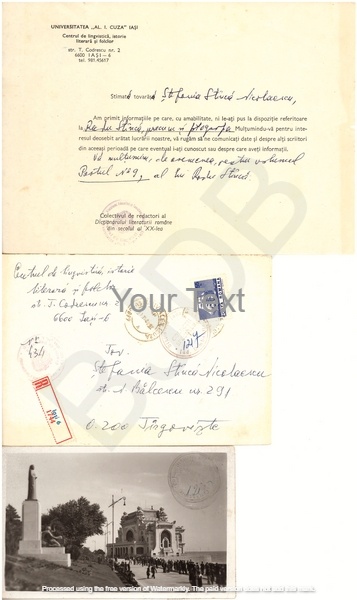 UNIVERSITATEA „AL. I. CUZA" IAȘI
Centrul de lingvistică, istorie
literară și folclor
str. T. Codrescu nr. 2
6600 IAȘI-6
tel. 981.45617
Stimată tovarășă Ștefania Stincă Nicolaescu,
Am primit informațiile pe care, cu amabilitate, ni le-ați pus la dispoziție referitoare
la Radu Stincă, precum și fotografia. Mulțumindu-vă pentru interesul
deosebit arătat lucrării noastre, vă rugăm să ne comunicați date și despre alți scriitori
din aceeași perioadă pe care eventual i-ați cunoscut sau despre care aveți informații.
Vă mulțumim, de asemenea, pentru volumul
al lui Radu Stincă
Colectivul de redactori al
Dicționarului literaturii române
din secolul al XX-lea
Centrul de lingvistică, istorie
literară și folclor
st. T. Codrescu 2
6600 Iași-6
Your Text
Tov.
Ștefania Stincă Nicolaescu
str. N Bălcescu nr. 291
0200 Tîrgoviște
Processed using the free version of Watermarkly. The paid version does not add this mark.